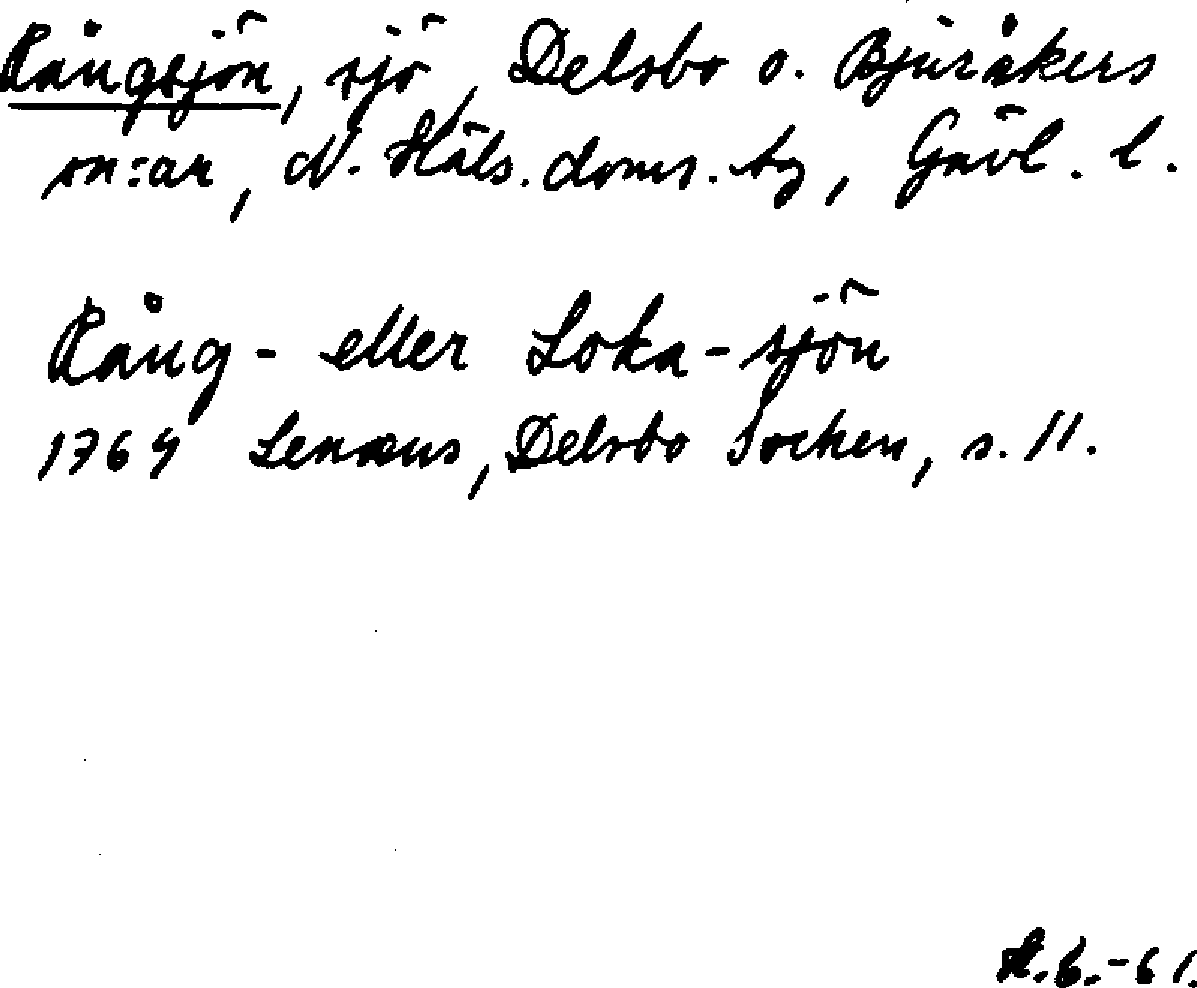 Rångsjön, sjö, Delsbo o. Bjuråkers
sn:ar, N. Häls. doms. tg, Gävl. l.
Rång- eller Loka-sjön
1764 Lenæus, Delsbo Socken, s. 11.